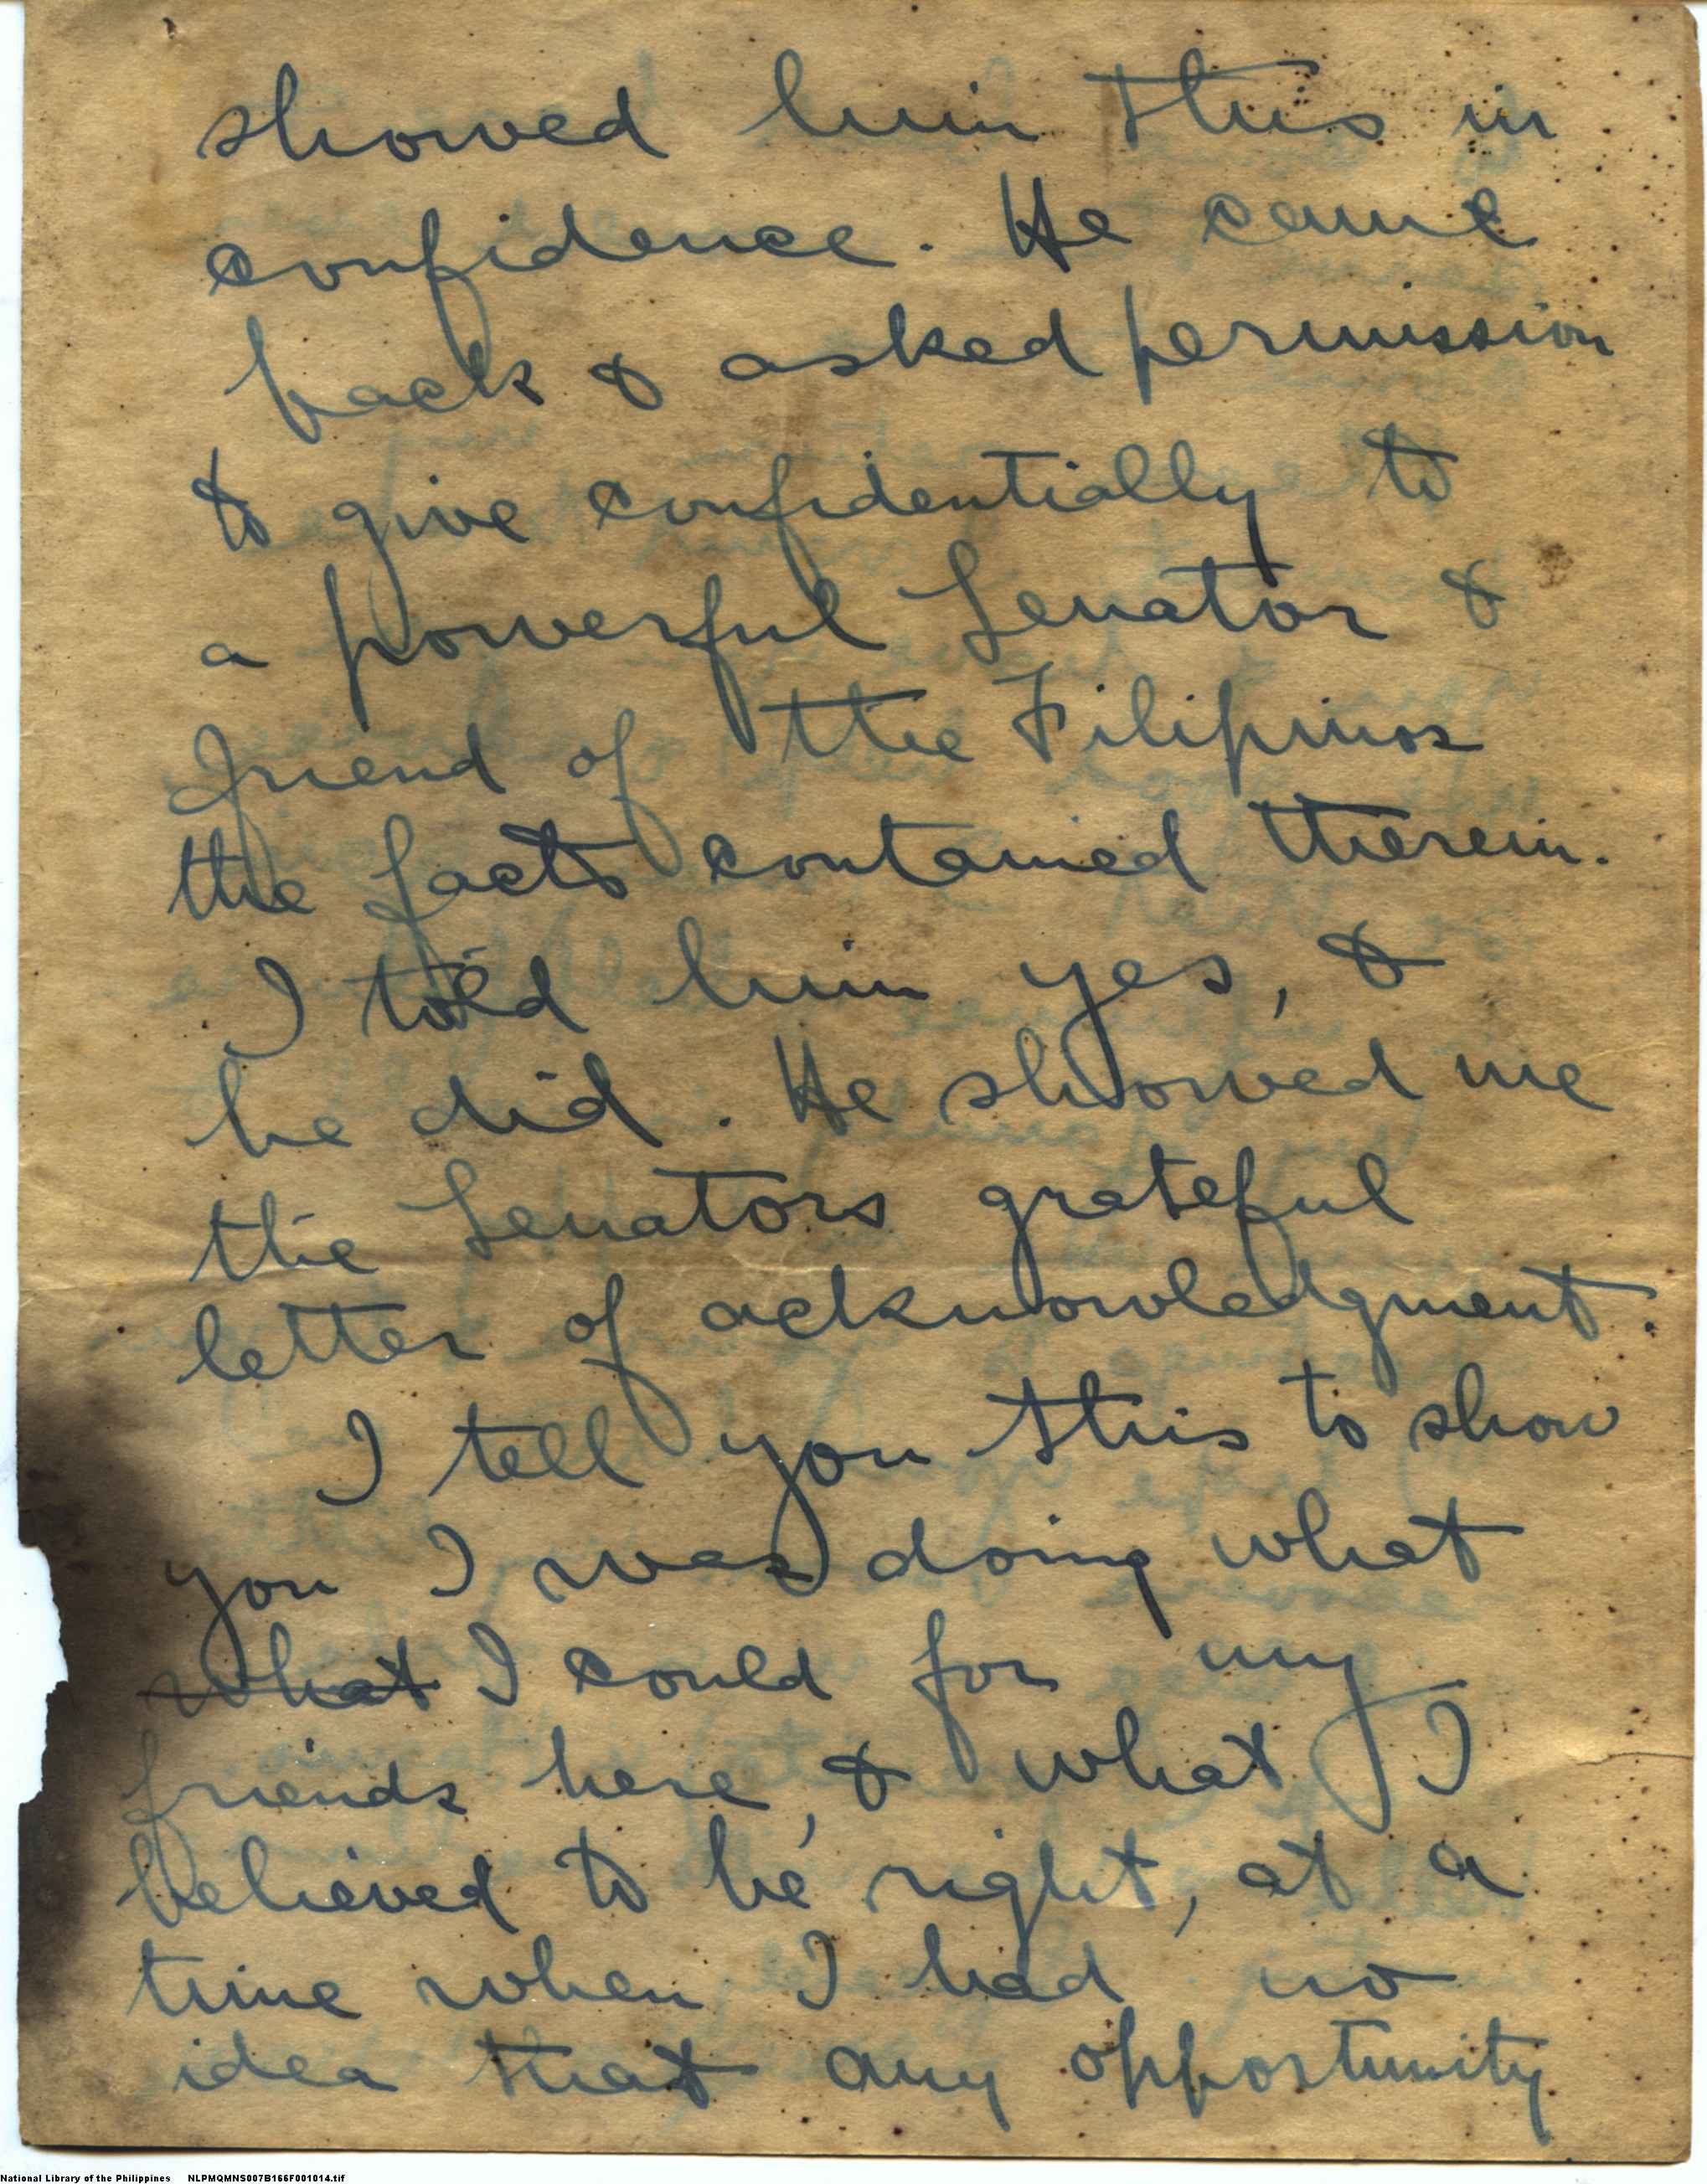 showed him this in
confidence. He came
back & asked permission
to give confidentially to
a powerful Senator &
friend of the Filipinos
the facts contained therein.
I told him yes, &
he did. He showed me
the Senators grateful
letter of acknowledgment.
I tell you this to show
you I was doing what
what I could for my
friends here, & what I
believed to be right, at a
time when I had no
idea that any opportunity
National Library of the Philippines NLPMQMNS007B166F001014.tif